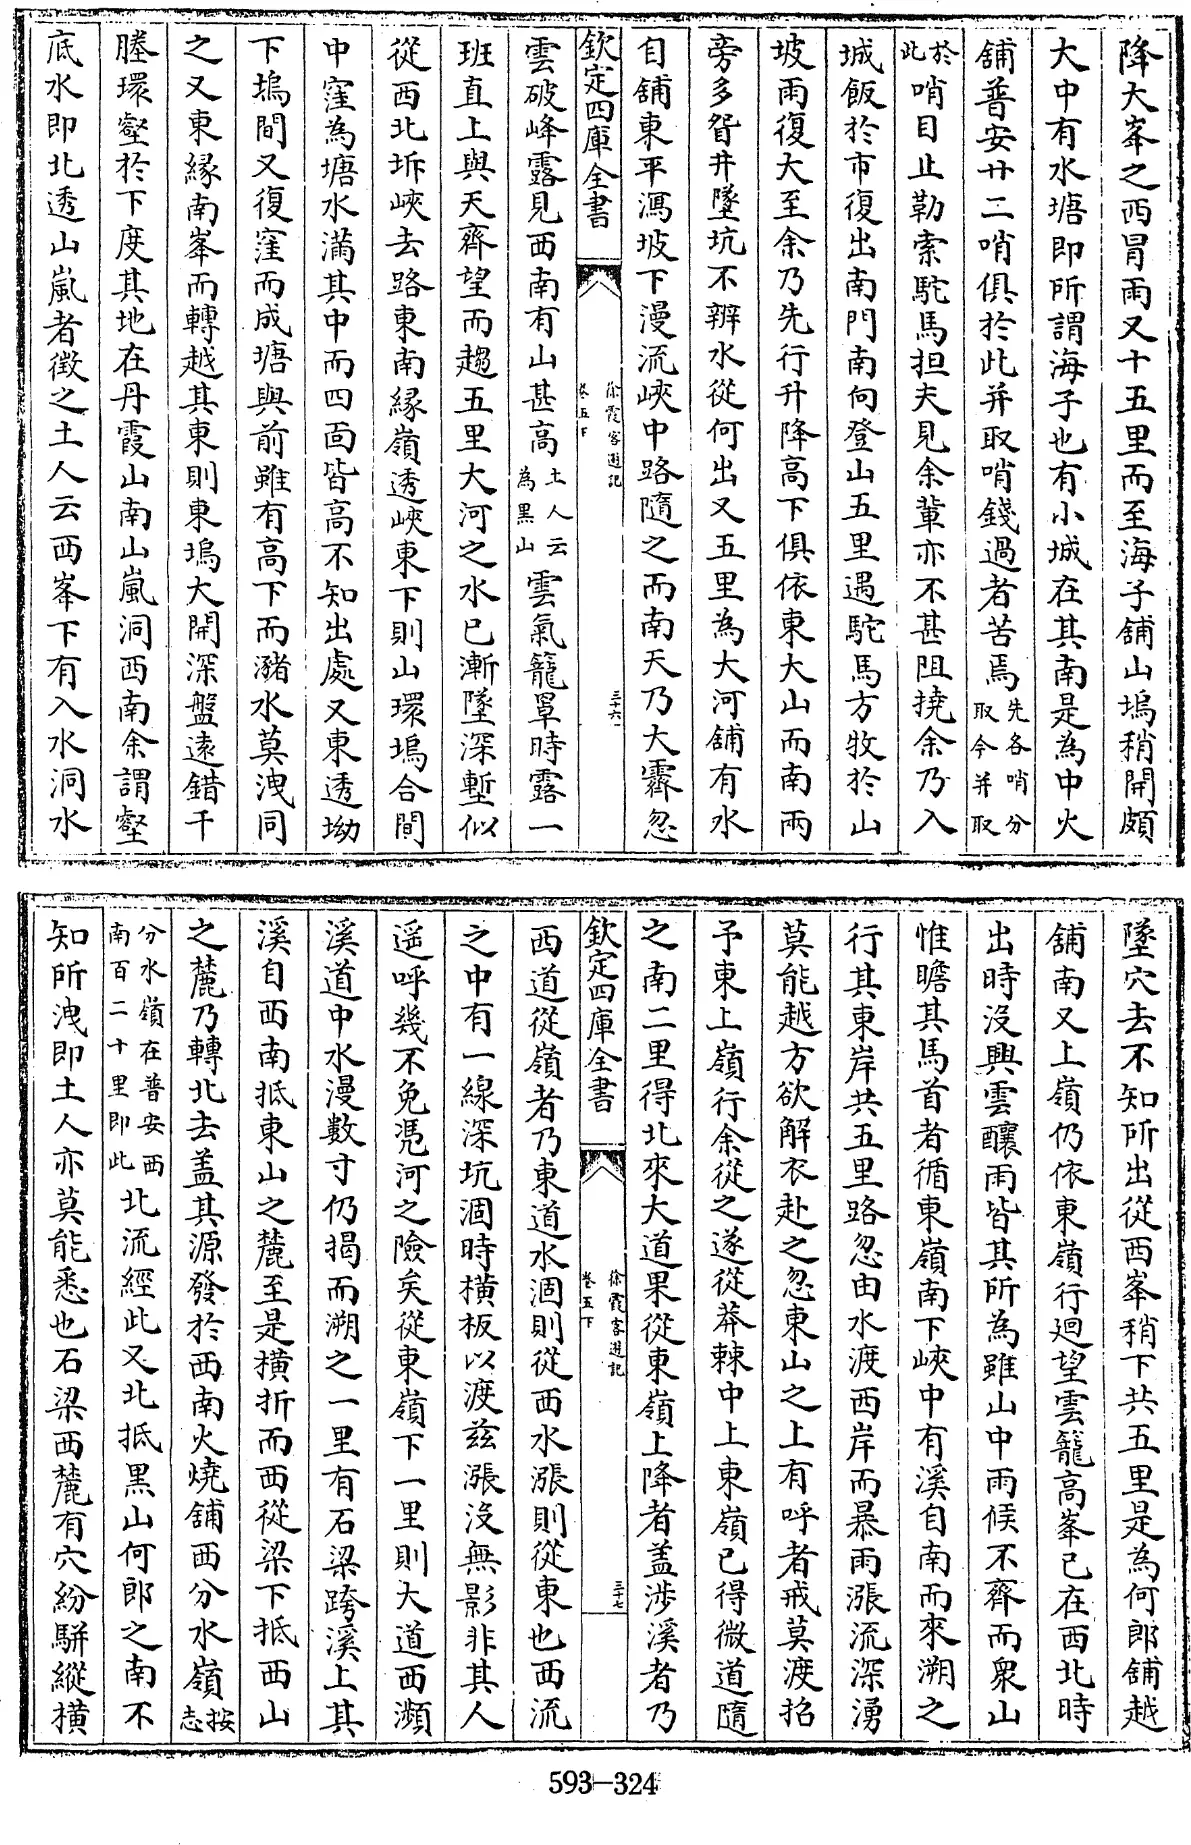 降大峯之西冐雨又十五里而至海子舖山塢稍開頗
大中有水塘即所謂海子也有小城在其南是為中火
舖普安廿二哨俱於此并取哨錢過者苦焉先各哨分取今并取
於此哨目止勒索駝馬担夫見余輩亦不甚阻撓余乃入
城飯於市復出南門南向登山五里遇駝馬方牧於山
坡雨復大至余乃先行升降高下俱依東大山而南兩
旁多眢井墜坑不辨水從何出又五里為大河舖有水
自舖東平瀉坡下漫流峽中路隨之而南天乃大霽忽
欽定四庫全書
徐霞客遊記
卷五下
三十六
雲破峰露見西南有山甚高土人云為黑山雲氣籠罩時露一
班直上與天齊望而趨五里大河之水已漸墜深塹似
從西北坼峽去路東南緣嶺透峽東下則山環塢合間
中窪為塘水滿其中而四靣皆高不知出處又東透坳
下塢間又復窪而成塘與前雖有高下而瀦水莫洩同
之又東緣南峯而轉越其東則東塢大開深盤逺錯千
塍環壑於下度其地在丹霞山南山嵐洞西南余謂壑
底水即北透山嵐者徵之土人云西峯下有入水洞水
墜穴去不知所出從西峯稍下共五里是為何郎舖越
舖南又上嶺仍依東嶺行廻望雲籠高峯已在西北時
出時沒興雲釀雨皆其所為雖山中雨候不齊而衆山
惟瞻其馬首者循東嶺南下峽中有溪自南而來溯之
行其東岸共五里路忽由水渡西岸而暴雨漲流深湧
莫能越方欲解衣赴之忽東山之上有呼者戒莫渡招
予東上嶺行余從之遂從莽棘中上東嶺已得微道隨
之南二里得北來大道果從東嶺上降者盖涉溪者乃
欽定四庫全書
徐霞客遊記
卷五下
三十七
西道從嶺者乃東道水涸則從西水漲則從東也西流
之中有一線深坑涸時横板以渡兹漲沒無影非其人
遥呼幾不免凴河之險矣從東嶺下一里則大道西瀕
溪道中水漫數寸仍揭而溯之一里有石梁跨溪上其
溪自西南抵東山之麓至是横折而西從梁下抵西山
之麓乃轉北去盖其源發於西南火燒舖西分水嶺按志
分水嶺在普安西南百二十里即此北流經此又北抵黑山何郎之南不
知所洩即土人亦莫能悉也石梁西麓有穴紛駢縱横
593-324